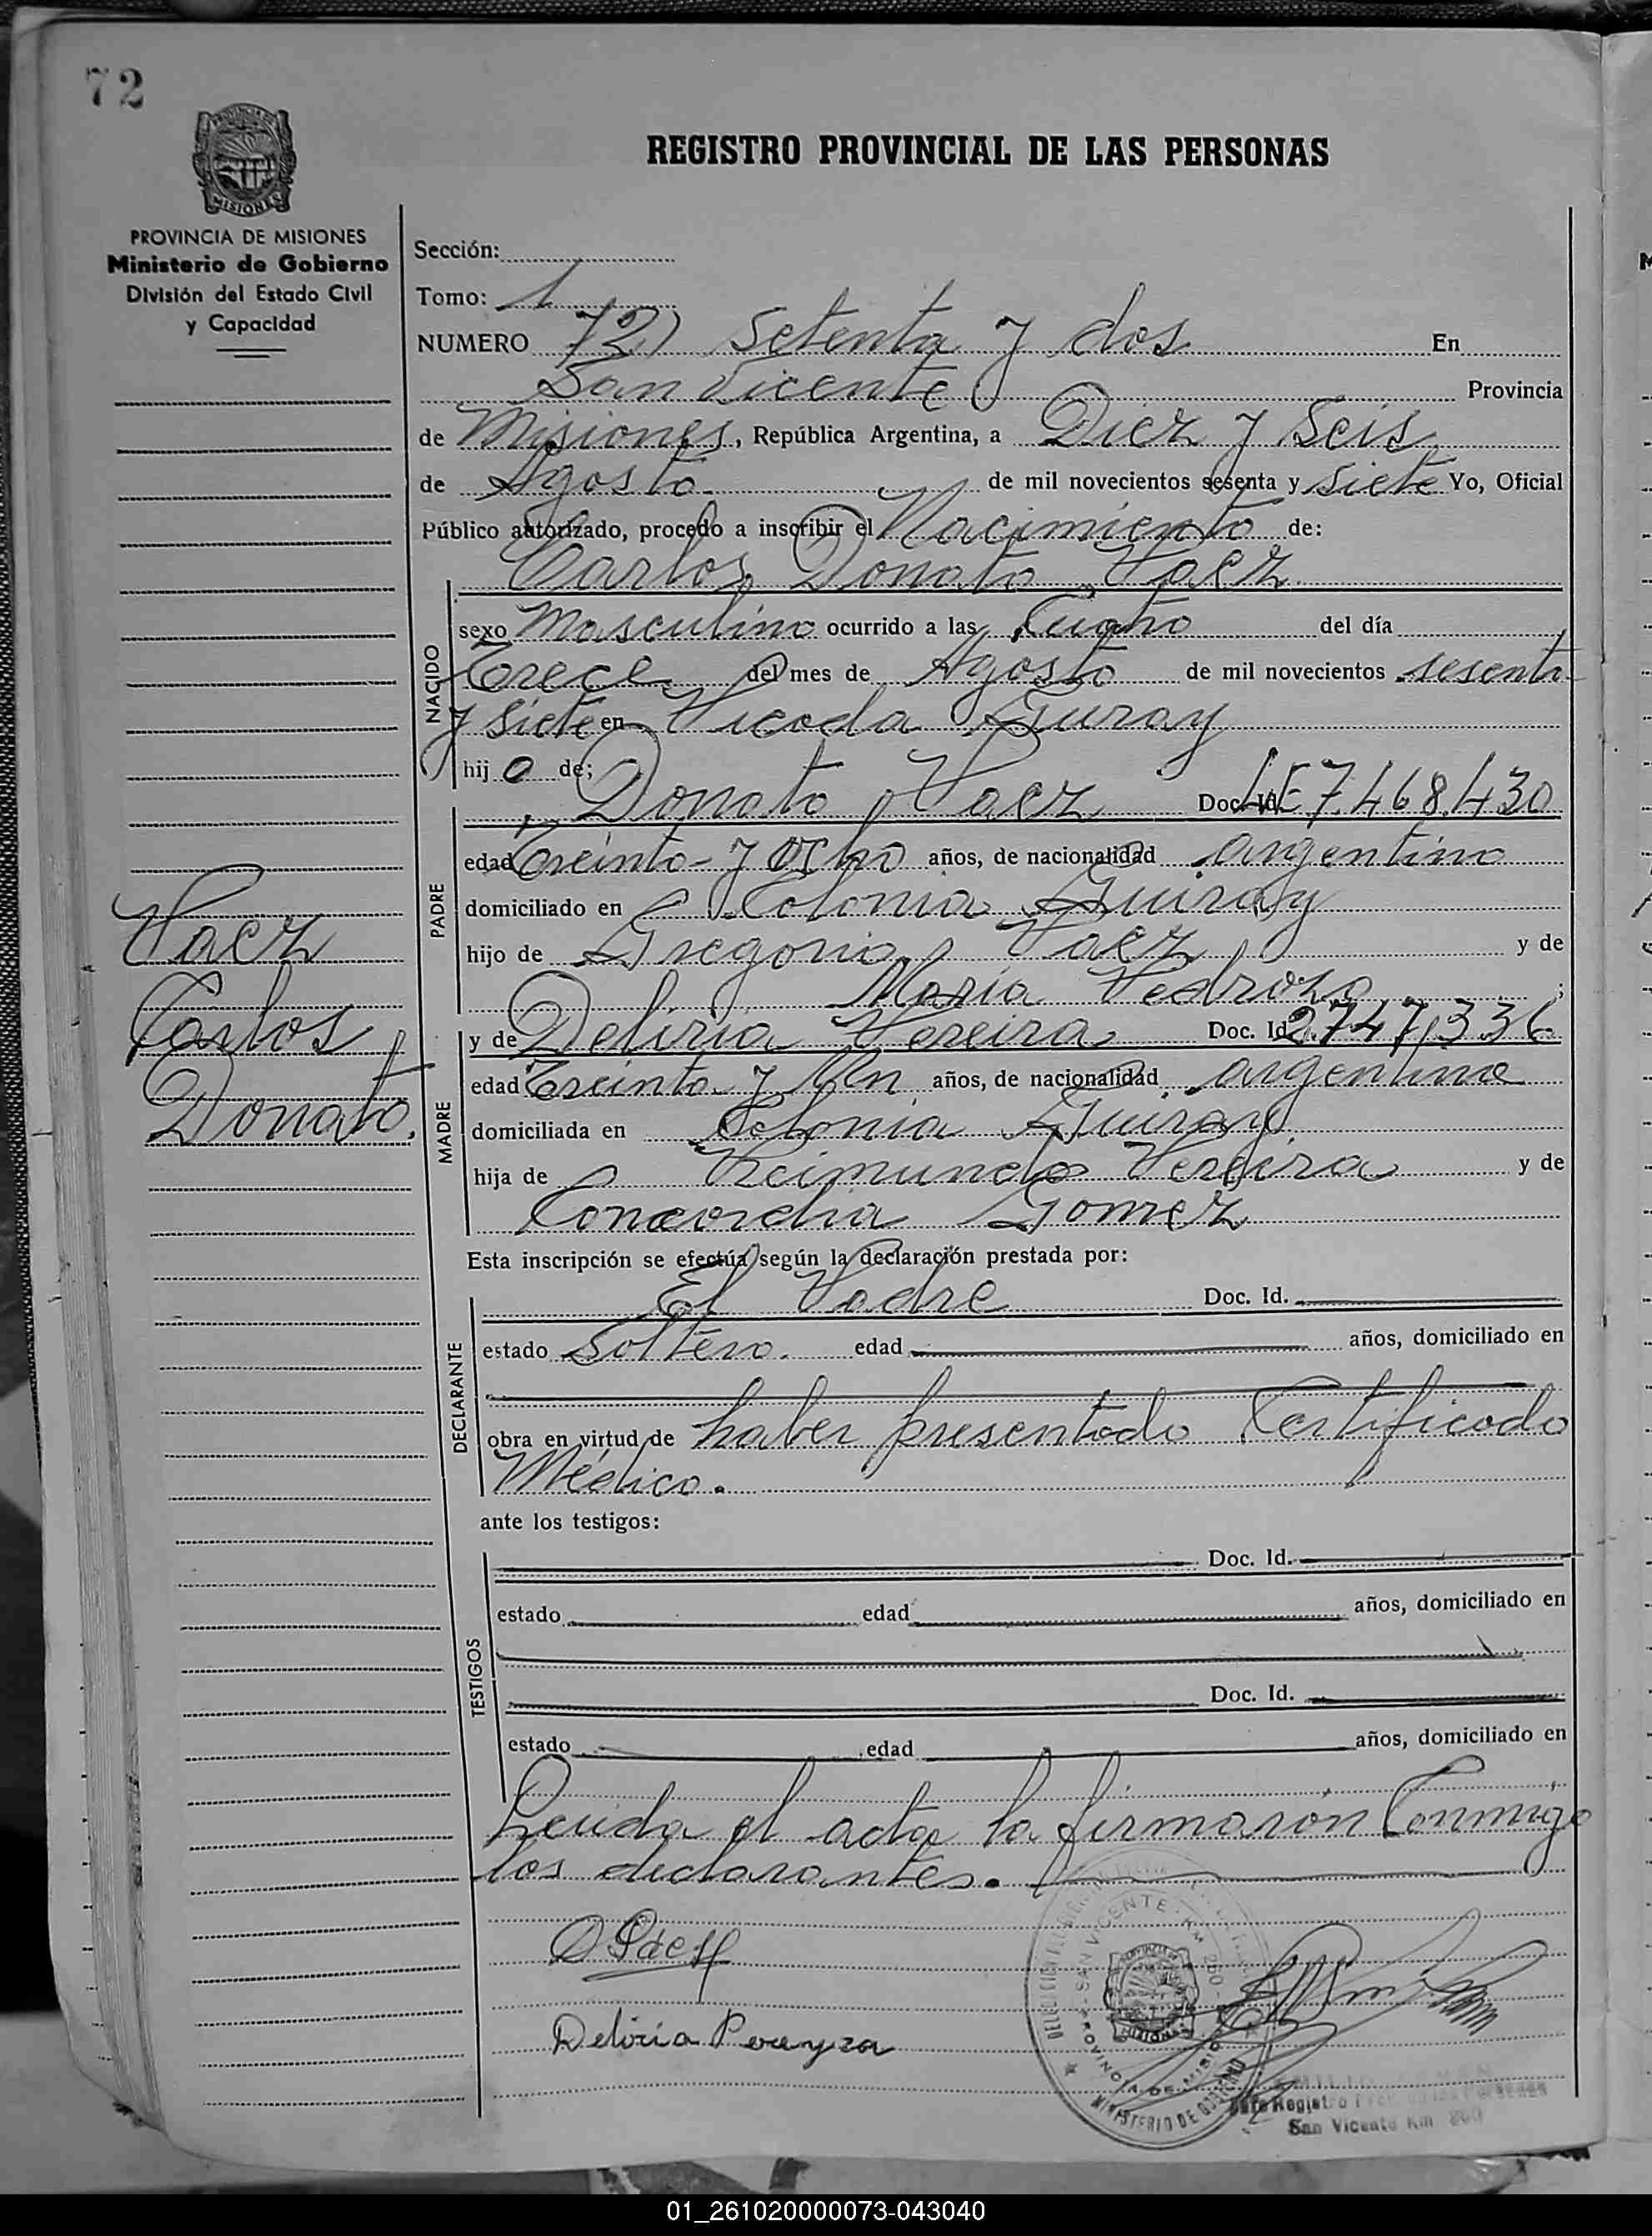 72
REGISTRO PROVINCIAL DE LAS PERSONAS
PROVINCIA DE MISIONES
Ministerio de Gobierno
División del Estado Civil
y Capacidad
Sección:
Tomo: 1
NUMERO 72) Setenta y dos En
San Vicente Provincia
de Misiones, República Argentina, a Diez y Seis
de Agosto de mil novecientos sesenta y siete Yo, Oficial
Público autorizado, procedo a inscribir el Nacimiento de:
Carlos Donato Paez
NACIDO
sexo Masculino ocurrido a las Cuatro del día
Trece del mes de Agosto de mil novecientos sesenta
y siete en Picada Guray
hijo de;
PADRE
Donato Paez Doc. Id. LE 7.468.430
edad Treinta y Ocho años, de nacionalidad argentino
domiciliado en Colonia Guiray
hijo de Gregorio Paez y de
Maria Pedrozo;
MADRE
y de Deliria Pereira Doc. Id. 2.747,336
edad Treinta y Un años, de nacionalidad argentina
domiciliada en Colonia Guiray
hija de Reimundo Pereira y de
Concordia Gomez
Esta inscripción se efectúa según la declaración prestada por:
DECLARANTE
El Padre Doc. Id.
estado Soltero. edad años, domiciliado en
obra en virtud de haber presentado Certificado
Médico.
ante los testigos:
TESTIGOS
Doc. Id.
estado edad años, domiciliado en
Doc. Id.
estado edad años, domiciliado en
Leida el acta la firmarón Conmigo
los declarantes.
Paez
Carlos
Donato.
D Paez
Deliria Pereyra
SAN VICENTE - KM 260
PROVINCIA DE MISIONES
MINISTERIO DE GOBIERNO
San Vicente Km 260
01_261020000073-043040